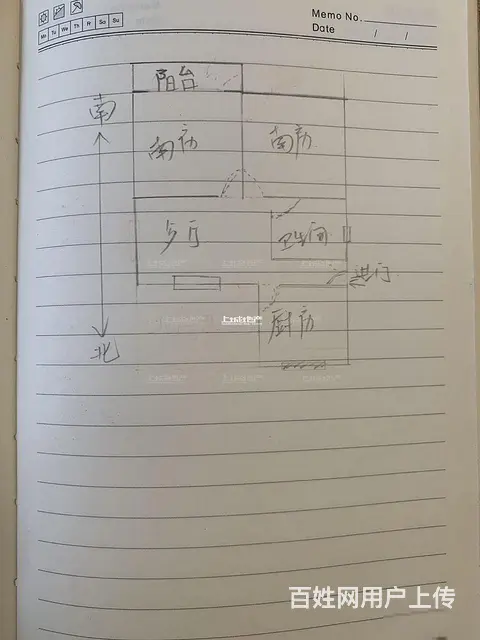 Memo No.
Date / /
Mo Tu We Th Fr Sa Su
阳台
南
南房
南房
客厅
卫生间
进门
厨房
北
百姓网用户上传